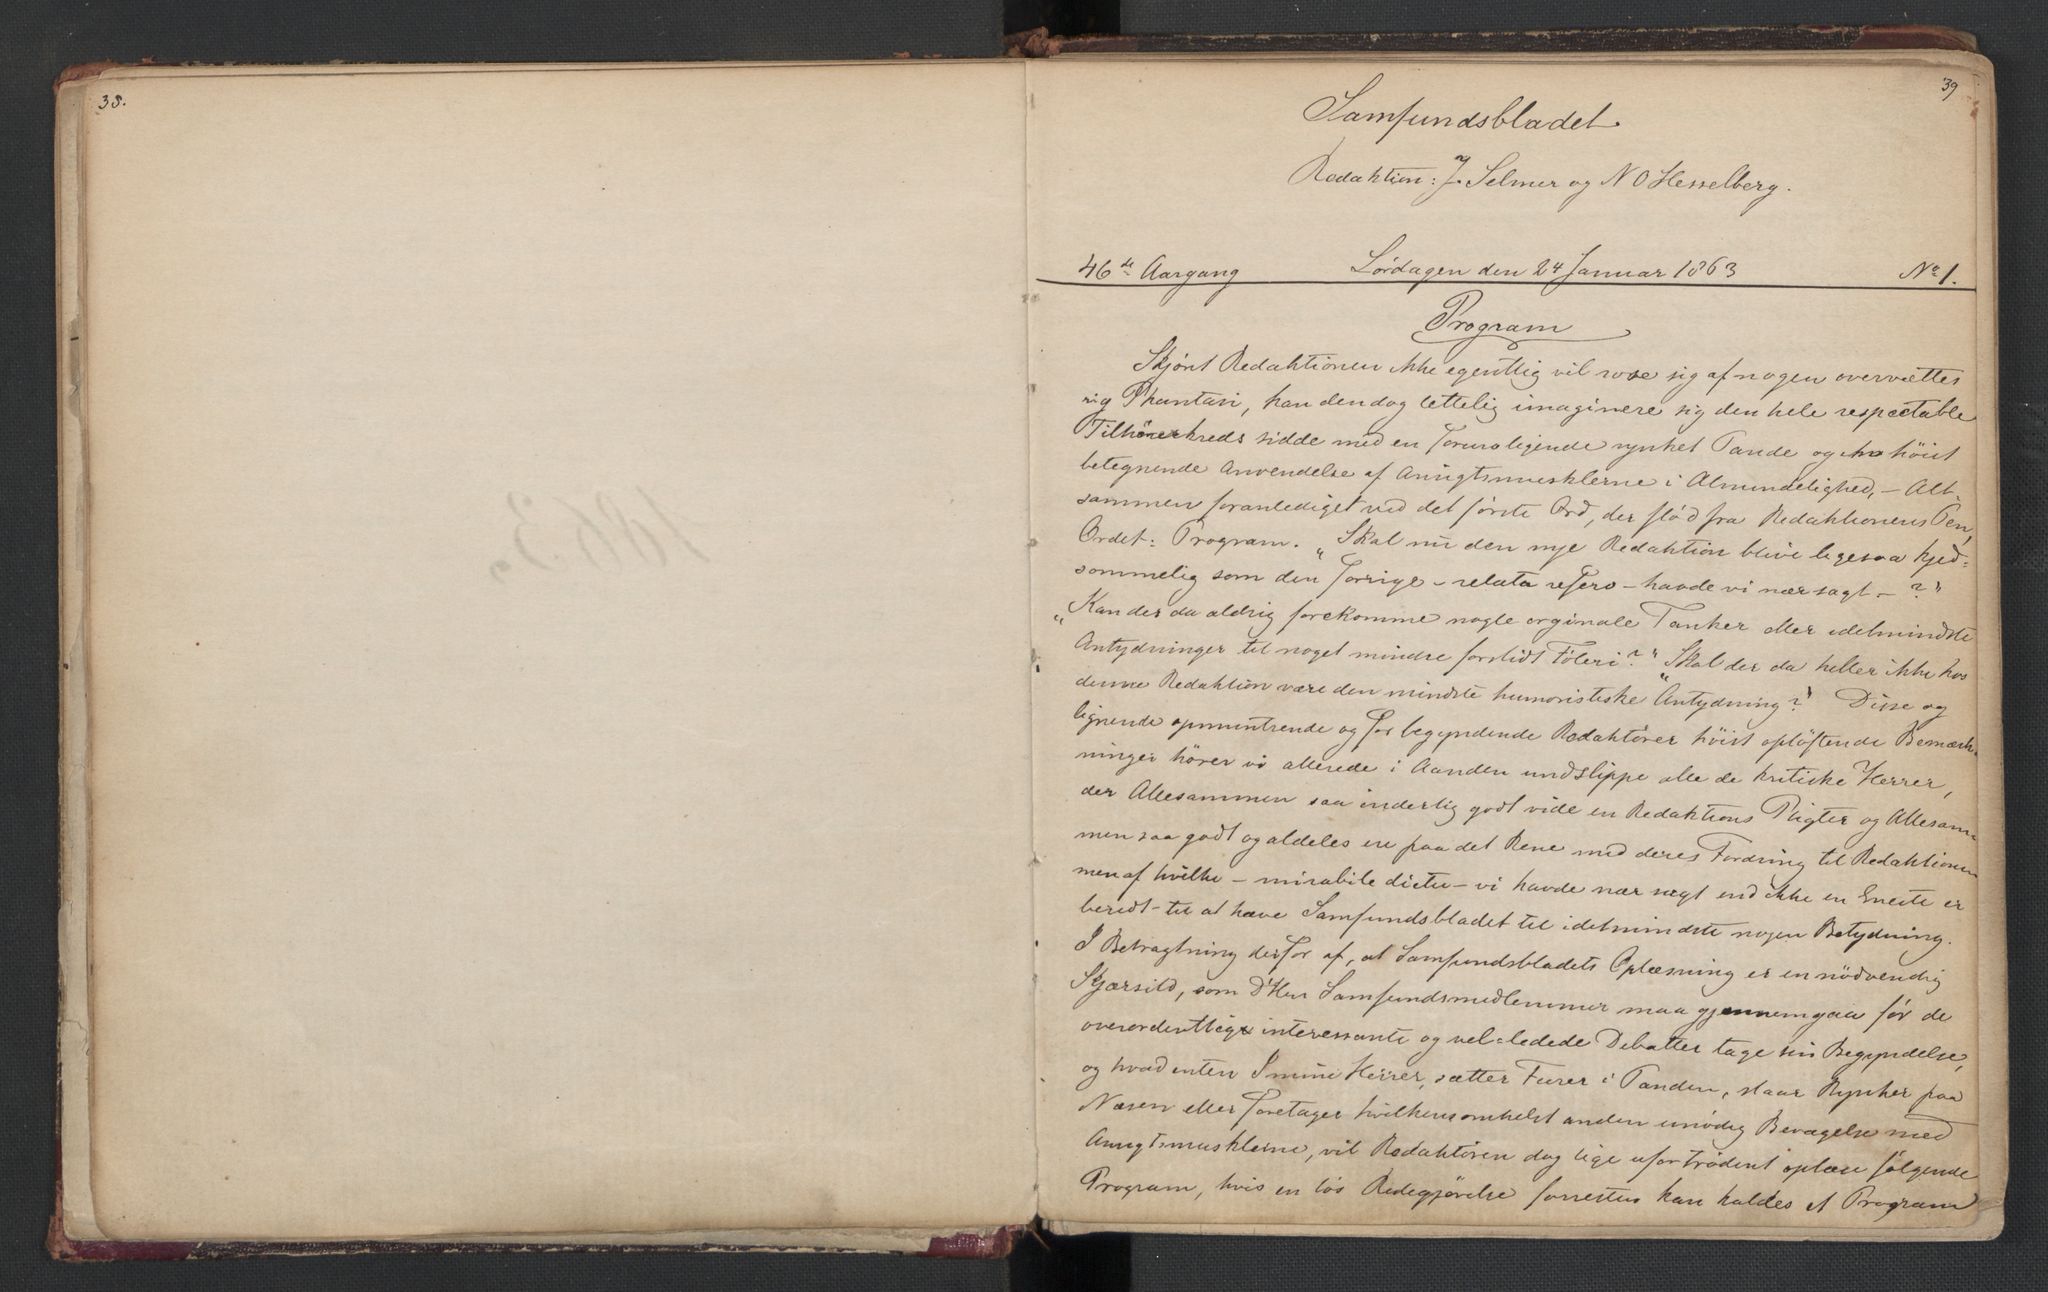 38.
39
Samfundsbladet
Redaktion: J. Selmer og N O Hesselberg.
46de Aargang Lördagen den 24 Januar 1863 No 1.
Program
Skjönt Redaktionen ikke egentlig vil rose sig af nogen overvættes
rig Phantasi, kan den dog lettelig imaginere sig den hele respectable
Tilhörerkreds sidde med en foruroligende rynket Pande og höist
betegnende Anvendelse af Ansigtsmusklerne i Almindelighed, – Alt-
sammen foranlediget ved det förste Ord, der flöd fra Redaktionens Pen,
Ordet: Program. „Skal nu den nye Redaktion blive ligesaa kjed=
sommelig som den forrige – relata refero – havde vi nær sagt – ?"
„Kan der da aldrig forekomme nogle orginale Tanker eller idetmindste
Antydninger til noget mindre forslidt Föleri?" Skal der da heller ikke hos
denne Redaktion være den mindste humoristiske Antydning?" Disse og
lignende opmuntrende og for begyndende Redaktörer höist oplöftende Bemærk-
ninger hörer vi allerede i Aanden undslippe alle de kritiske Herrer,
der Allesammen saa inderlig godt vide en Redaktions Pligter og Allesam=
men saa godt og aldeles ere paa det Rene med deres Fordring til Redaktionen
men af hvilke – mirabile dictu – vi havde nær sagt end ikke en Eneste er
beredt til at hæve Samfundsbladet til idetmindste nogen Betydning.
I Betragtning derfor af, at Samfundsbladets Oplæsning er en nödvendig
Skjærsild, som D'Hrr Samfundsmedlemmer maa gjennemgaa för de
overordentlige interessante og vel=ledede Debatter tage sin Begyndelse,
og hvad enten I mine Herrer, sætter Furer i Panden, slaar Rynker paa
Næsen eller foretager hvilkensomhelst anden unödig Bevægelse med
Ansigtsmusklerne, vil Redaktören dog lige ufortrödent oplæse fölgende
Program, hvis en lös Redegjörelse forresten kan kaldes et Program
1863.